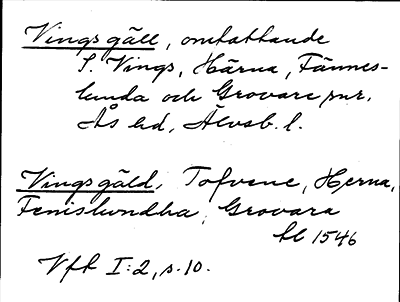 Vings gäll, omfattande
S. Vings, Härna, Fännes-
lunda och Grovare snr.
Ås hd, Älvsb. l.
Vingsgäld, Tofvene, Herna,
Fenislundha, Grovara
hl 1546
Vfk I:2, s. 10.